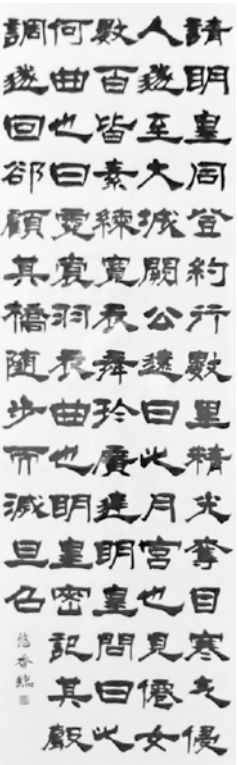 請明皇同登約行數里精光奪目寒气侵
人遂至大城闕公遠曰此月宮也見僊女
數百皆素練寬衣舞於廣庭明皇問曰此
何曲也曰霓裳羽衣曲也明皇密記其聲
調遂回卻顧其橋隨步而滅旦召
悠香臨